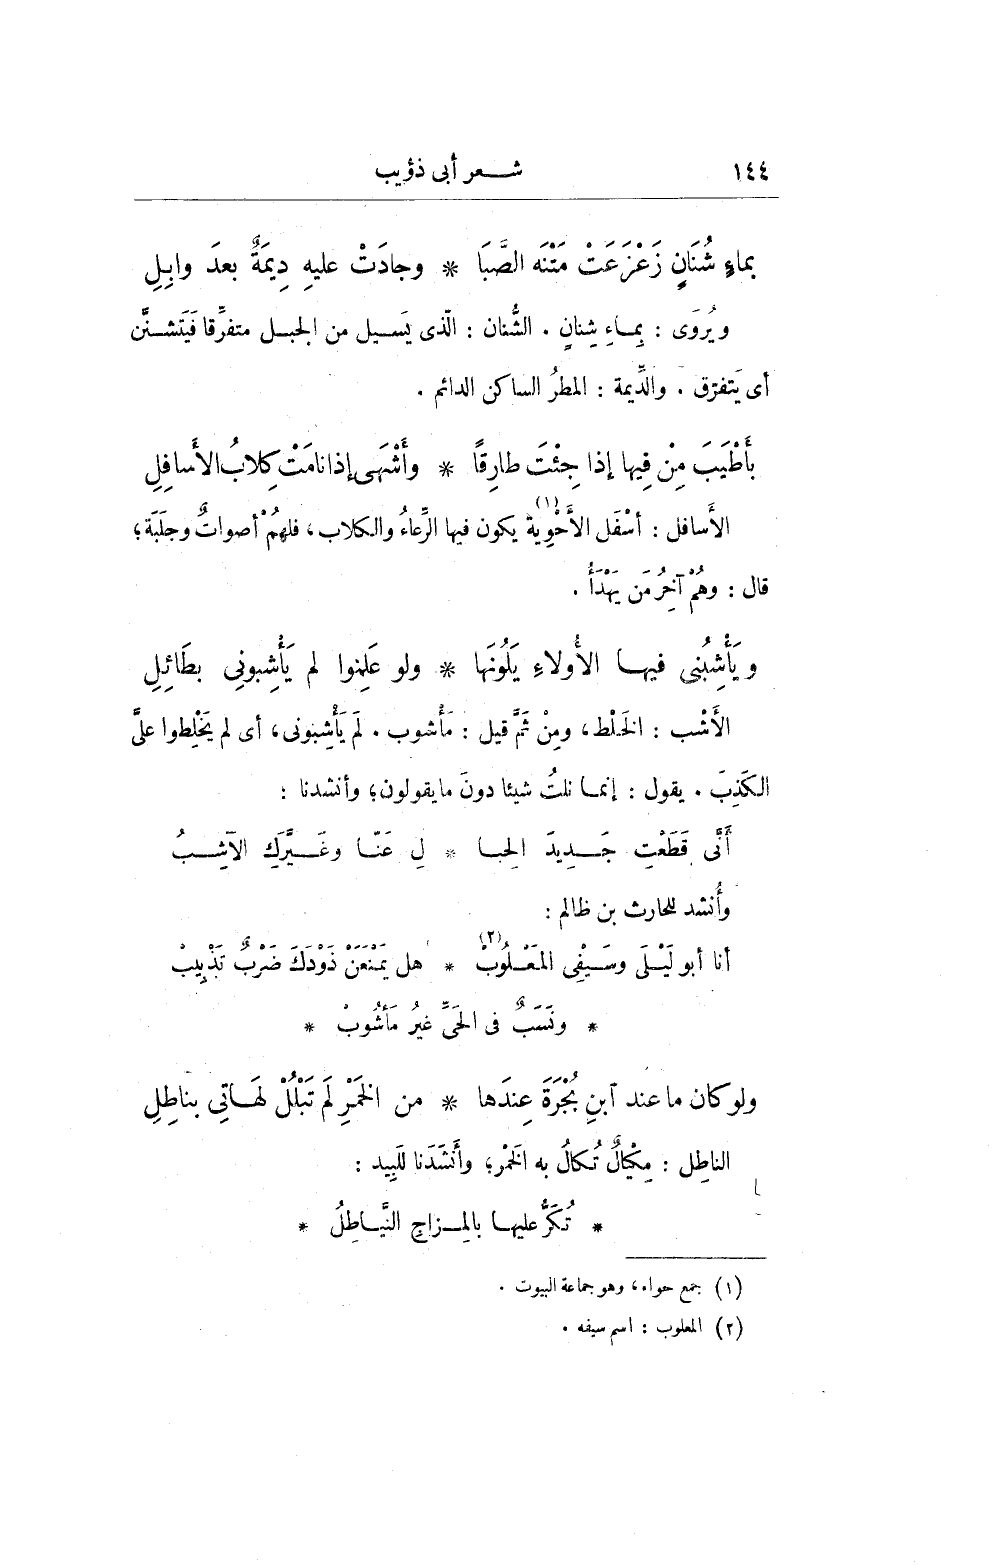 ١٤٤ شعر أبى ذؤيب
بماءِ شُنَانٍ زَعْزَعَتْ مَتْنَه الصَّبَا * وجادَتْ عليهِ دِيمَةٌ بعدَ وابِلِ
ويُروَى : بِماءِ شِنانٍ . الشُّنان : الّذى يَسيل من الجبل متفرِّقا فَيَتشنَّن
أى يَتفرّق . والدِّيمة : المطرُ الساكن الدائم .
بأَطْيَبَ مِنْ فِيها إذا جِئْتَ طارِقًا * وأَشْهَى إذا نامَتْ كِلابُ الأَسافِلِ
الأَسافل : أسْفَل الأَحْوِيةِ (١) يكون فيها الرِّعاءُ والكلاب، فلهمْ أصواتٌ وجلَبَة؛
قال : وهُمْ آخِرُ مَن يَهْدَأُ .
ويَأْشِبُنى فيها الأُولاءِ يَلُونَها * ولو عَلِمُوا لم يَأْشِبونِى بطَائِلِ
الأَشْب : الخَلْط، ومِنْ ثَمَّ قيل : مَأْشوب . لَم يَأْشِبونى، أى لم يَخْلِطوا علىَّ
الكَذِبَ . يقول : إنما نلتُ شيئا دونَ ما يقولون؛ وأنشدنا :
أَنَّى قَطَعْتِ جَديدَ الحِبا * لِ عَنّا وغَيَّرَكِ الآشِبُ
وأُنشد للحارث بن ظالم :
أنا أبو لَيْلَى وسَيْفِى المَعْلُوبْ (٢) * هل يَمْنَعَنْ ذَوْدَكَ ضَرْبٌ تَذْبِيبْ
* ونَسَبٌ فى الحَىِّ غيرُ مَأْشُوبْ *
ولو كان ما عند آبنِ بُجْرَةَ عِندَها * من الخَمْرِ لَم تَبْلُلْ لَهَاتِى بناطِلِ
الناطِل : مِكْيالٌ تُكالُ به الخَمْر؛ وأَنشَدَنا للَبِيد :
* تُكَرُّ عليها بالمِزاجِ النَّياطِلُ *
(١) جمع حواء، وهو جماعة البيوت .
(٢) المعلوب : اسم سيفه .